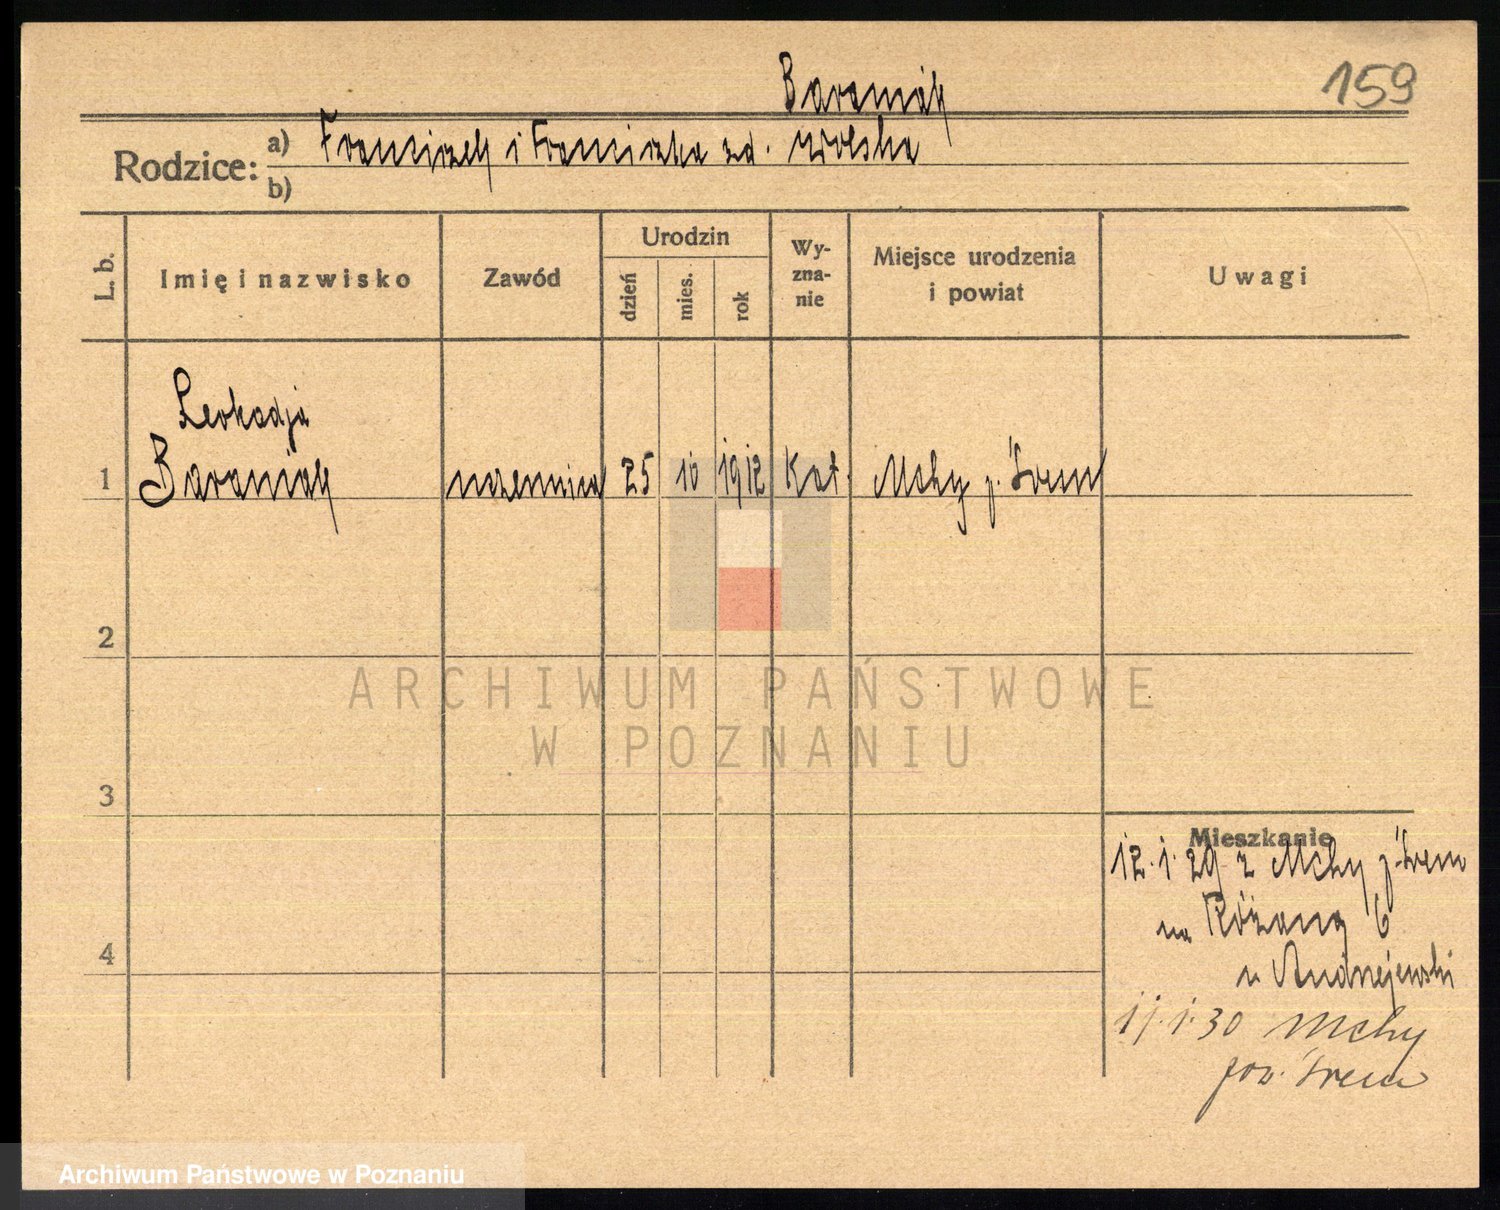 159
Baraniak
Rodzice: a) Franciszek i Franciszka zd. Wolska
b)
L. b.
Imię i nazwisko
Zawód
Urodzin
dzień
mies.
rok
Wy-
zna-
nie
Miejsce urodzenia
i powiat
Uwagi
Leokadja
1 Baraniak uczennica 25 10 1912 Kat. Mchy p. Śrem
2
ARCHIWUM PAŃSTWOWE
W POZNANIU
3
Mieszkanie
12.1.29 z Mchy p. Śrem
na Różana 6
4
u Andrzejewski
1.30 Mchy
pow. Śrem
Archiwum Państwowe w Poznaniu